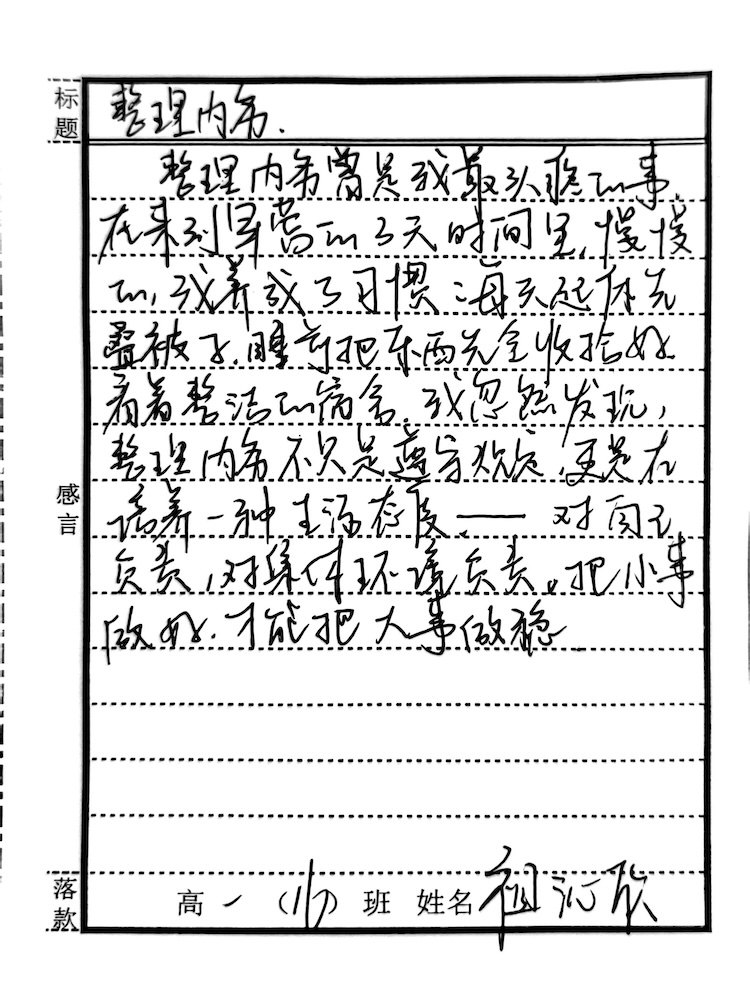 标题
整理内务.
整理内务曾是我最头疼的事.
在来到军营的3天时间里,慢慢
的,我养成了习惯:每天起床先
叠被子,睡前把东西先全收拾好
看着整洁的宿舍,我忽然发现,
整理内务不只是遵守规定,更是在
感言
培养一种生活态度——对自己
负责,对集体环境负责。把小事
做好.才能把大事做稳
落款
高一(17)班 姓名 祖